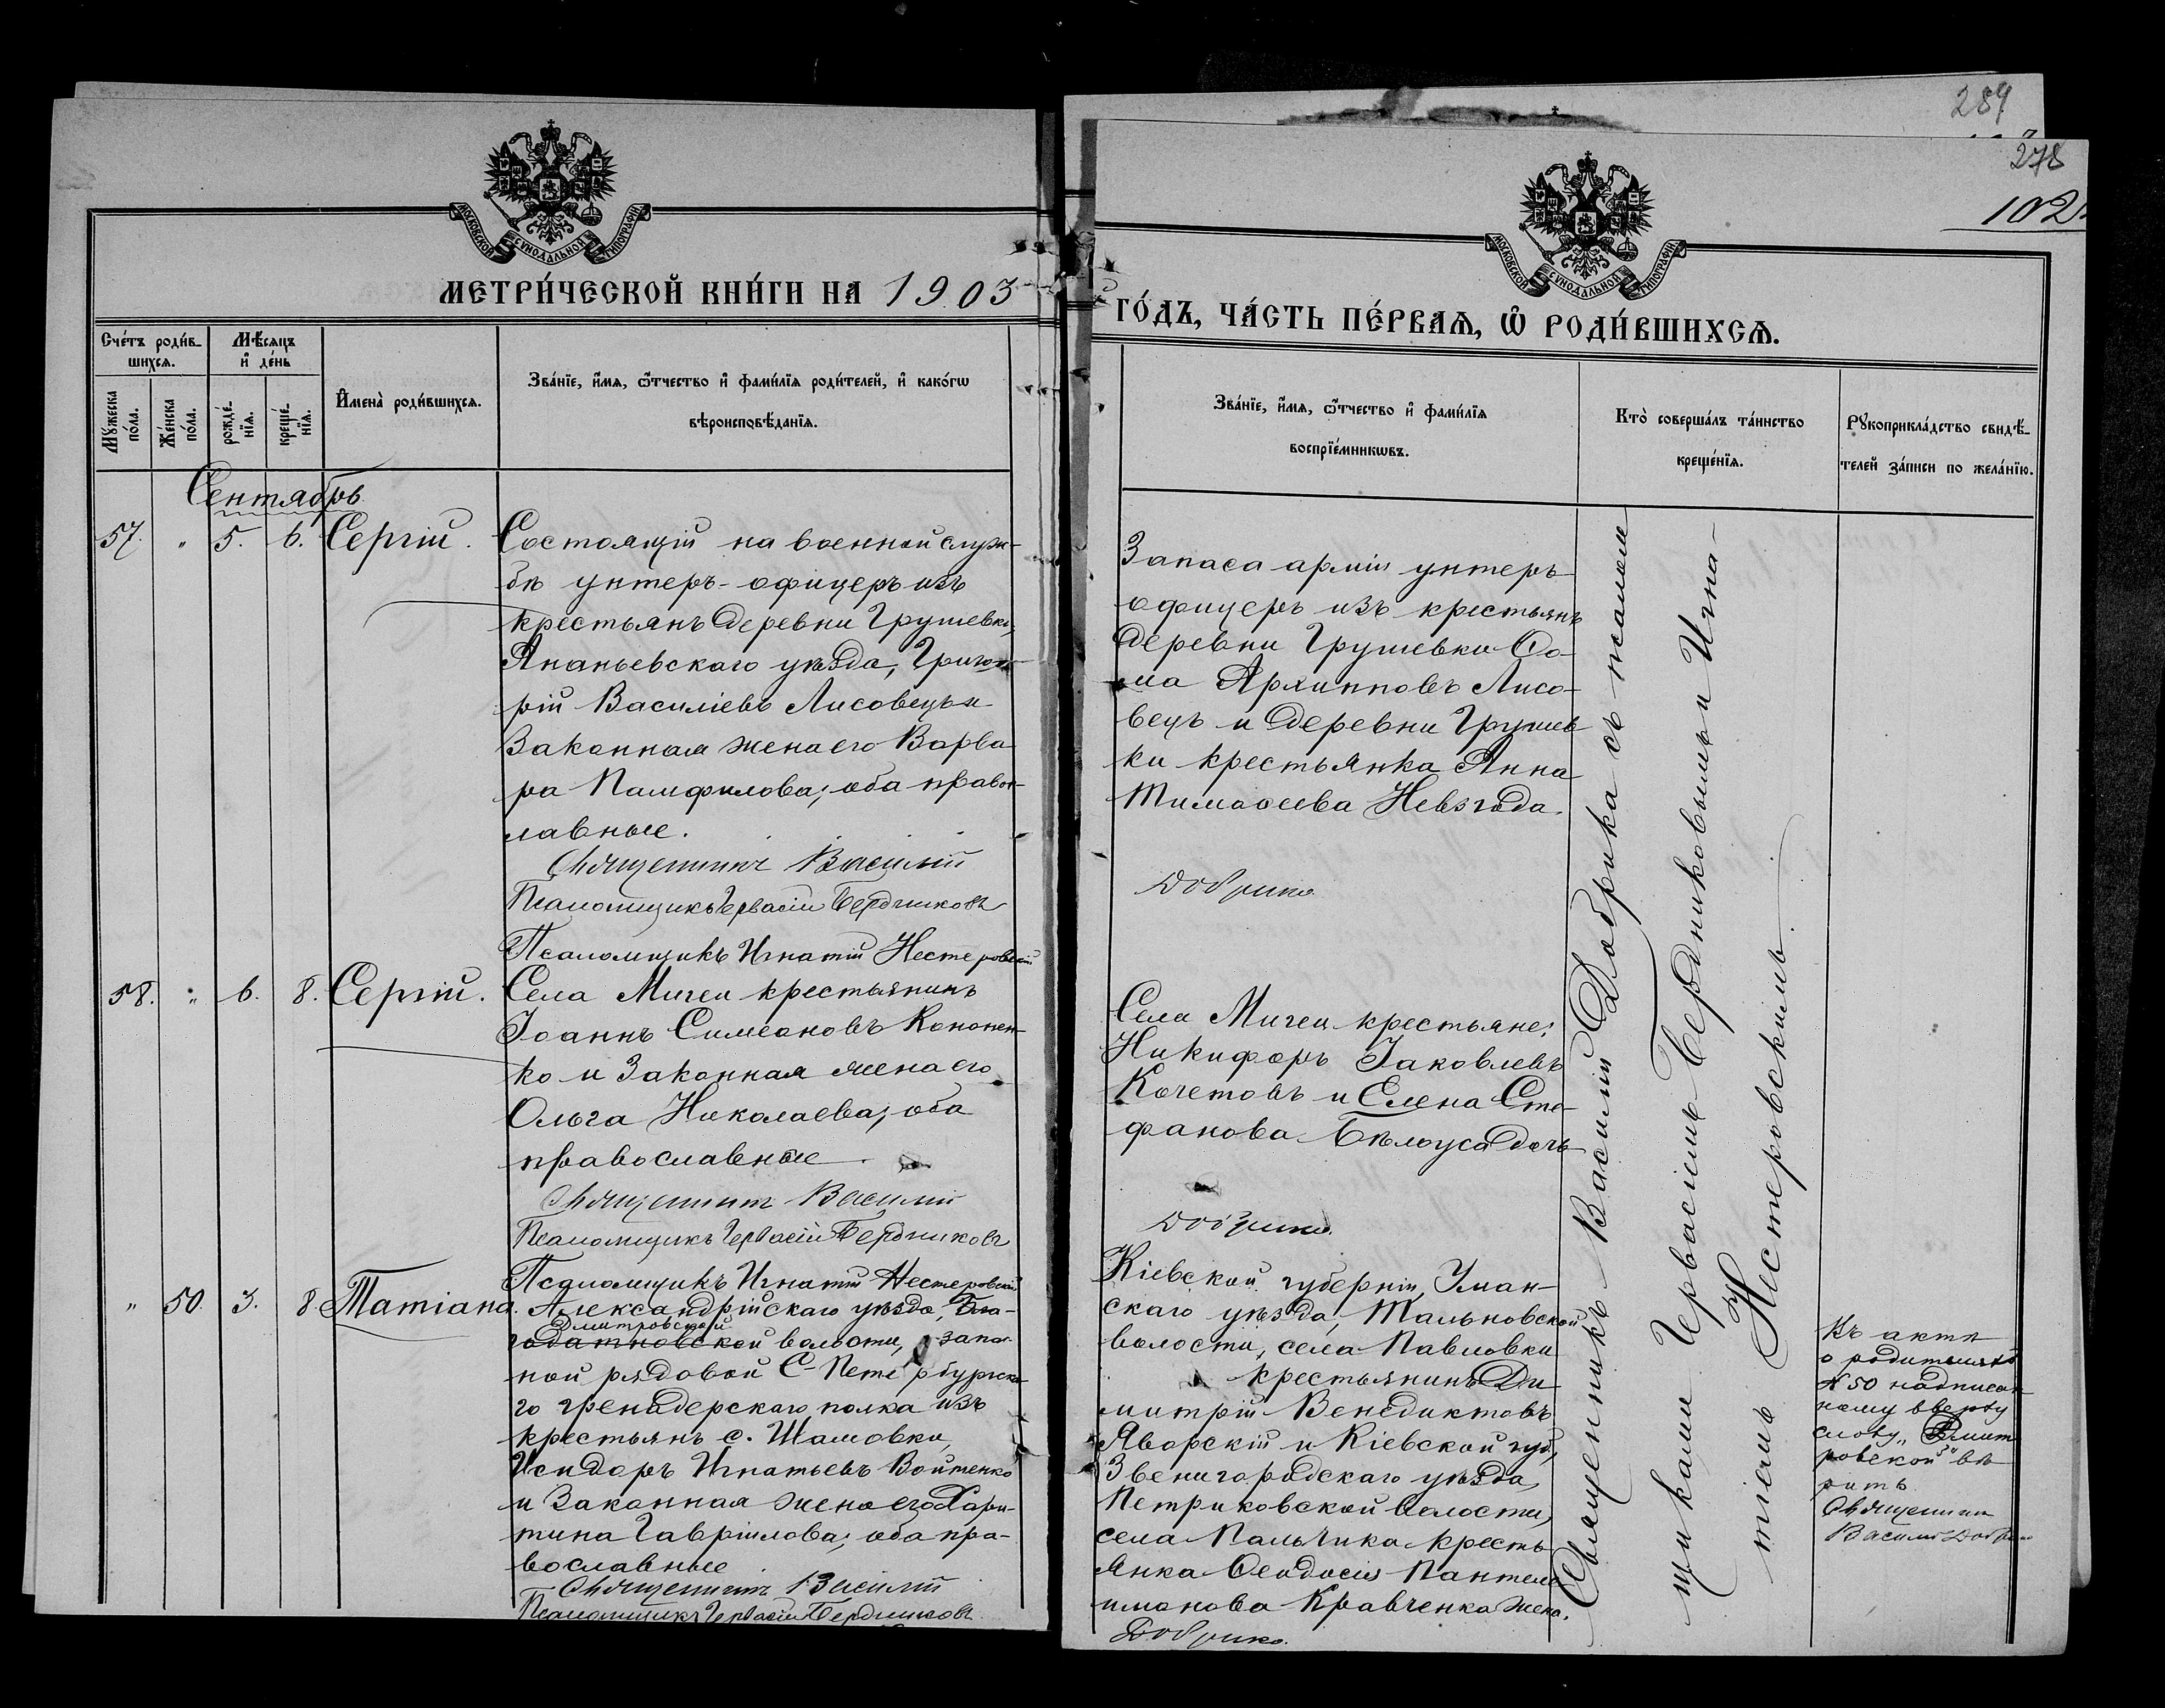 289
278
102
МОСКОВСКОЙ СѴНОДАЛЬНОЙ ТИПОГРАФІИ
МОСКОВСКОЙ СѴНОДАЛЬНОЙ ТИПОГРАФІИ
МЕТРИ́ЧЕСКОЙ КНИ́ГИ НА 1903
ГО́ДЪ, ЧА́СТЬ ПЕ́РВАѦ, Ѽ РОДИ́ВШИХСѦ.
Сче́тъ роди́в-
шихсѧ.
Мѣ́сѧцъ
и҆ де́нь
Мꙋ́жеска по́ла.
Же́нска по́ла.
рожде́-нїѧ.
креще́-нїѧ.
И҆мена̀ роди́вшихсѧ.
Зва́нїе, и҆́мѧ, ѻ҆́тчество и҆ фами́лїѧ роди́телей, и҆ како́гѡ
вѣроисповѣ́данїѧ.
Зва́нїе, и҆́мѧ, ѻ҆́тчество и҆ фами́лїѧ
воспрїе́мникѡвъ.
Кто̀ соверша́лъ та́инство
креще́нїѧ.
Рꙋкоприкла́дство свидѣ́-
телей за́писи по жела́нїю.
Сентябрь
57. " 5. 6. Сергій. Состоящій на военной служ-
бѣ унтеръ-офицеръ изъ
крестьянъ деревни Грушевки,
Ананьевскаго уѣзда, Григо-
рій Василіевъ Лисовецъ и
законная жена его Варва
ра Памфилова; оба правос-
лавные.
Священникъ Василій
Псаломщикъ Гервасій Бердниковъ
Псаломщикъ Игнатій Нестеровскій
Запаса арміи унтеръ
офицеръ изъ крестьянъ
деревни Грушевки Ѳо-
ма Архипповъ Лисо-
вецъ и деревни Грушев
ки крестьянка Анна
Тимоѳеева Невзгода.
Добрика
58. " 6. 8. Сергій. Села Мигеи крестьянинъ
Іоаннъ Симеоновъ Кононен-
ко и законная жена его
Ольга Николаева; оба
православные.
Священникъ Василій
Псаломщикъ Гервасій Бердниковъ
Псаломщикъ Игнатій Нестеровскій
Села Мигеи крестьяне:
Никифоръ Іаковлевъ
Кочетовъ и Елена Сте-
фанова Бѣлоуса дочь
Добрика
" 50. 3. 8 Татіана. Александрійскаго уѣзда, Бла-
Дмитровской
годатновской волости, запас-
ной рядовой С-Петербургска
го гренадерскаго полка изъ
крестьянъ с. Шамовки,
Исидоръ Игнатьевъ Войтенко
и законная жена его Хари-
тина Гавріилова; оба пра-
вославные
Священникъ Василій
Псаломщикъ Гервасій Бердниковъ
Кіевской губерніи, Уман-
скаго уѣзда, Тальновской
волости, села Павловки
крестьянинъ Ди-
митрій Венедиктовъ
Яворскій и Кіевской губ.,
Звенигородскаго уѣзда,
Петриковской волости,
села Пальчика кресть
янка Ѳеодосія Пантеле
имонова Кравченка жена.
Добрика.
Священникъ Василій Добрика съ псалом
щиками Гервасіемъ Бердниковымъ и Игна-
тіемъ Нестеровскимъ.
Къ актѣ
о родителяхъ
№ 50 надписан
ному вверху
слову "Дмит
ровской" вѣ
рить
Священникъ
Василій Добрика